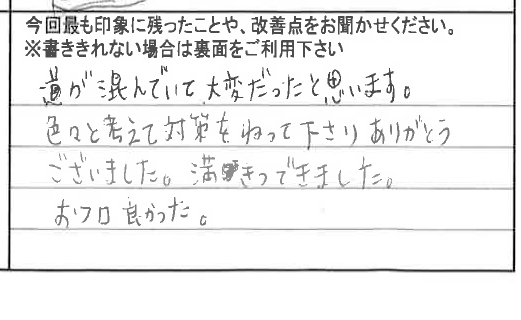 今回最も印象に残ったことや、改善点をお聞かせください。
※書ききれない場合は裏面をご利用下さい
道が混んでいて大変だったと思います。
色々と考えて対策をねって下さりありがとう
ございました。満きつできました。
おフロ良かった。